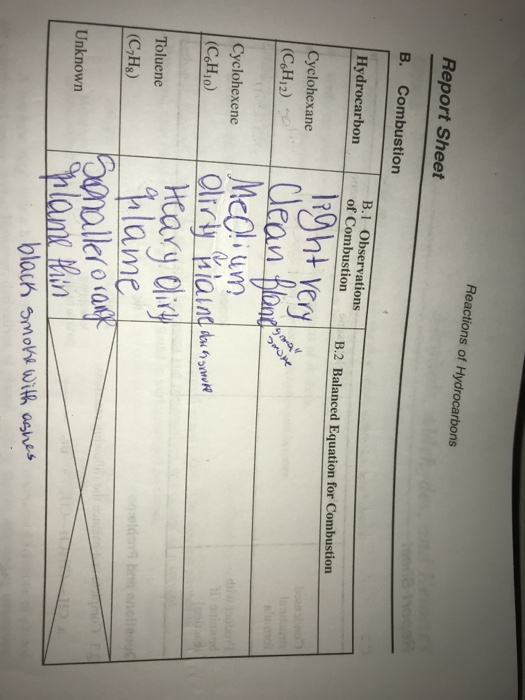 Reactions of Hydrocarbons
Report Sheet
B. Combustion
Hydrocarbon
B.1 Observations
of Combustion
B.2 Balanced Equation for Combustion
Cyclohexane
(C₆H₁₂)
light very
Clean flame
smoke
Cyclohexene
(C₆H₁₀)
Medium
dirty flame
Toluene
(C₇H₈)
Heavy dirty
flame
Unknown
Smaller orange
flame thin
black smoke with ashes